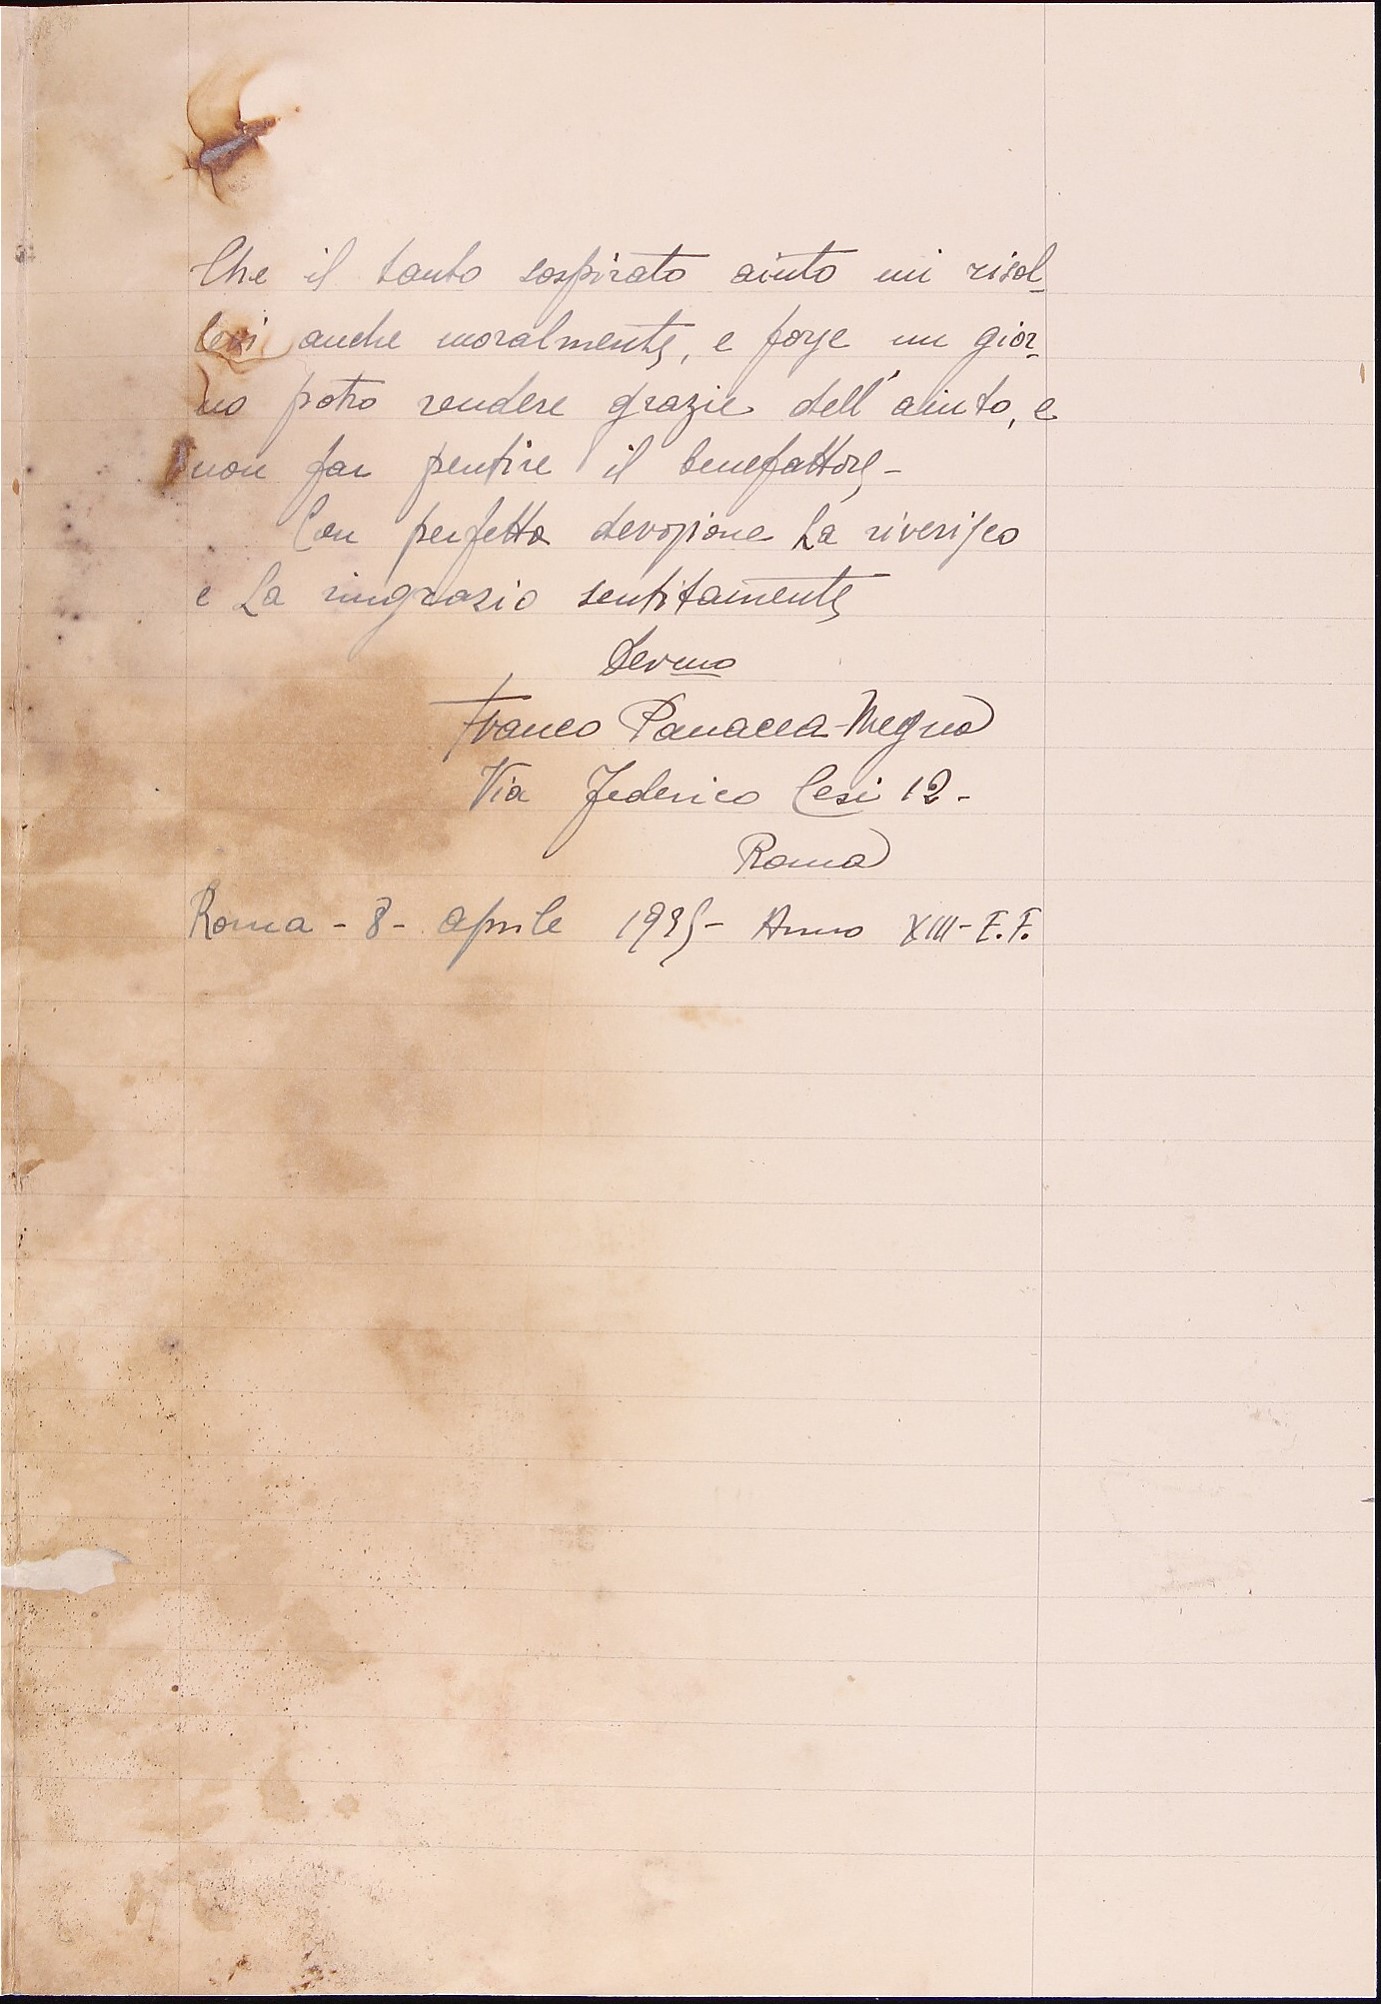 Che il tanto sospirato aiuto mi risol-
levi anche moralmente, e forse un gior-
no potro rendere grazie dell'aiuto, e
non far pentire il benefattore -
Con perfetta devozione La riverisco
e La ringrazio sentitamente
Devmo
Franco Panacea-Megna
Via Federico Cesi 12 -
Roma
Roma - 8 - Aprile 1935 - Anno XIII - E.F.